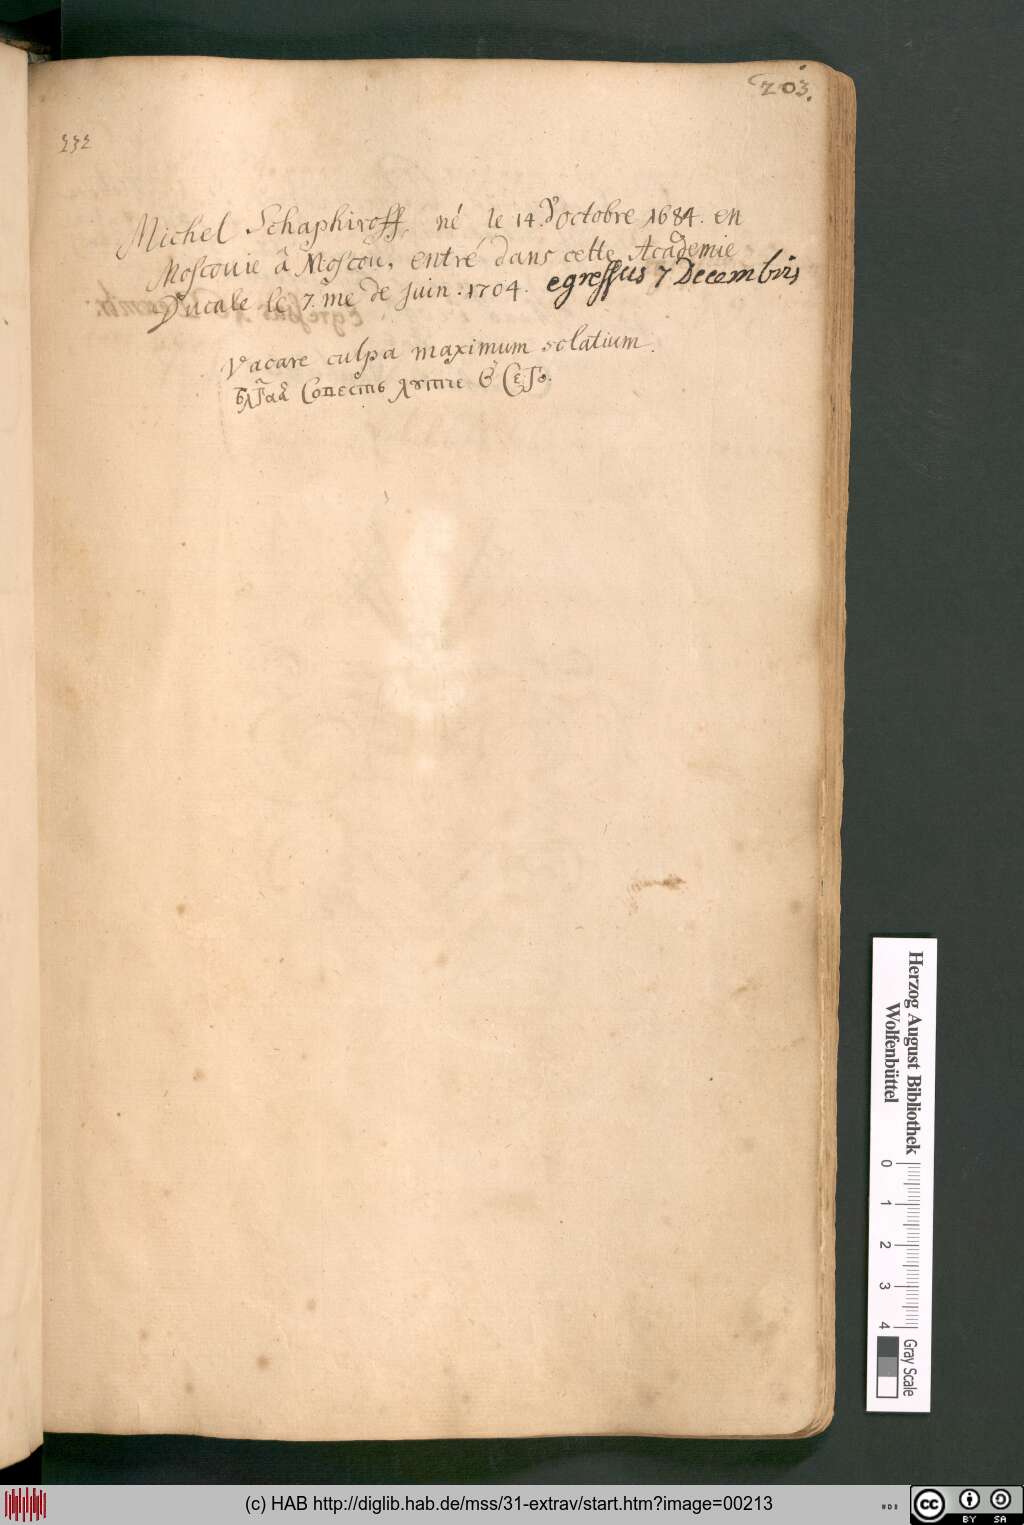 203.
232
Michel Schaphiroff, né le 14. d'octobre 1684. en
Moscovie â Moscou, entré dans cette Academie
Ducale le 7.me de Juin. 1704. egressus 7 Decembris
Vacare culpa maximum solatium.
Совесть лутше
Herzog August Bibliothek
Wolfenbüttel
0 1 2 3 4
Gray Scale
(c) HAB http://diglib.hab.de/mss/31-extrav/start.htm?image=00213
cc BY SA